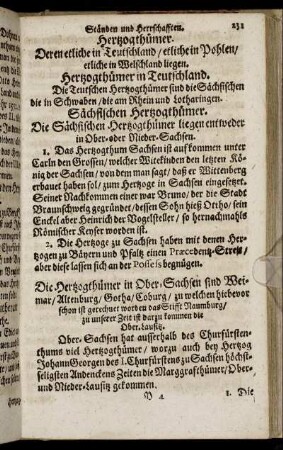 Ständen und Herrschafften. 231
Hertzogthümer.
Deren etliche in Teutschland / etliche in Pohlen /
etliche in Welschland liegen.
Hertzogthümer in Teutschland.
Die Teutschen Hertzogthümer sind die Sächsischen
die in Schwaben / die am Rhein und Lotharingen.
Sächsischen Hertzogthümer.
Die Sächsischen Hertzogthümer liegen entweder
in Ober- oder Nieder-Sachsen.
1. Das Hertzogthum Sachsen ist auffkommen unter
Carln den Grossen / welcher Witekinden den letzten Kö-
nig der Sachsen / von dem man sagt / daß er Wittenberg
erbauet haben sol / zum Hertzoge in Sachsen eingesetzet.
Seiner Nachkommen einer war Bruno / der die Stadt
Braunschweig gegründet / dessen Sohn hieß Otho / sein
Enckel aber Heinrich der Vogelsteller / so hernachmahls
Römischer Keyser worden ist.
2. Die Hertzoge zu Sachsen haben mit denen Her-
tzogen zu Bäyern und Pfaltz einen Præcedentz-Streit /
aber diese lassen sich an der Possess begnügen.
Die Hertzogthümer in Ober-Sachsen sind Wei-
mar / Altenburg / Gotha / Coburg / zu welchen hiebevor
schon ist gerechnet worden das Stifft Naumburg /
zu unserer Zeit ist darzu kommen die
Ober-Lausitz.
Ober-Sachsen hat ausserhalb des Churfürsten-
thums viel Hertzogthümer / worzu auch bey Hertzog
Johann Georgen des I. Churfürsten zu Sachsen höchst-
seligsten Andenckens Zeiten die Marggrafthümer / Ober-
und Nieder-Lausitz gekommen.
4 1. Die